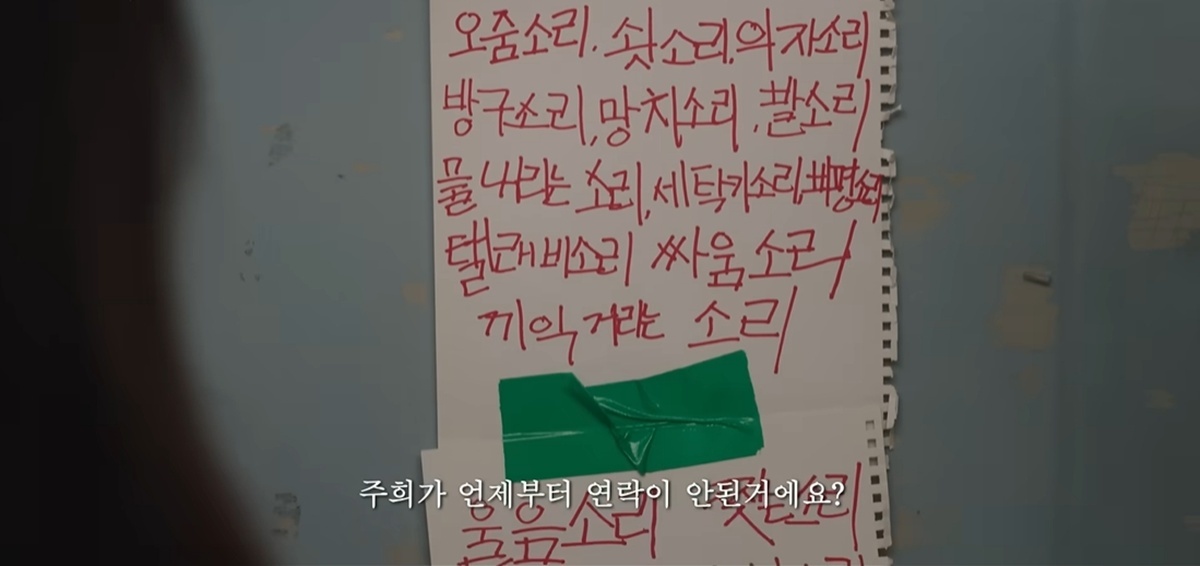 오줌소리. 쇳소리. 의자소리
방구소리, 망치소리, 발소리
물 내리는 소리, 세탁기소리,
텔레비소리 싸움소리
끼익 거리는 소리
주희가 언제부터 연락이 안된거에요?
울음소리